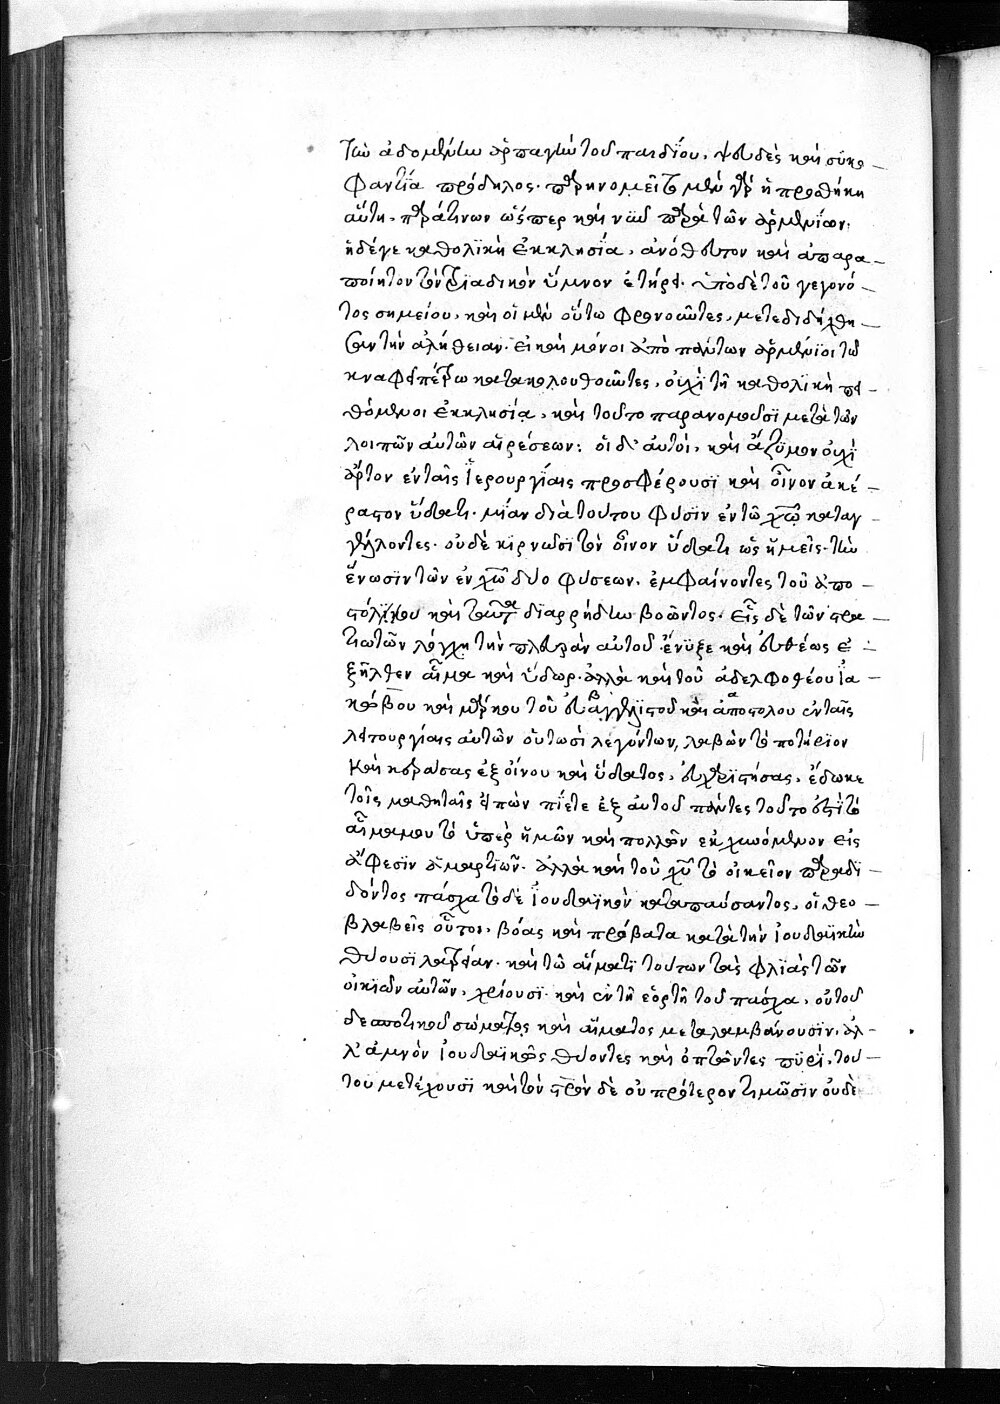 τὴν ἀδομένην ἁρπαγὴν τοῦ παιδίου, ψευδὲς καὶ συκο
φαντία πρόδηλος. παρηνομεῖτο μὲν γὰρ ἡ προσθήκη
αὕτη, παρά τινων ὥσπερ καὶ νῦν παρὰ τῶν ἀρμενίων,
ἡ δέγε καθολϊκὴ ἐκκλησία, ἀνόθευτον καὶ ἀπαρα
ποίητον τὸν τριαδικὸν ὕμνον ἐτήρει. ὑπὸ δὲ τοῦ γεγονό
τος σημείου, καὶ οἱ μὲν οὕτω φρονοῦντες, μετεδιδάχθη
σαν τὴν ἀλήθειαν. εἰ καὶ μόνοι ἀπὸ πάντων ἀρμένϊοι τῶ
κναφεῖ πέτρω κατακολουθοῦντες, οὐχὶ τῆ καθολικῆ πει
θόμενοι ἐκκλησία, καὶ τοῦτο παρανομοῦσϊ μετὰ τῶν
λοιπῶν αὐτῶν αἱρέσεων: οἱ δ' αὐτοὶ, καὶ ἄζϋμον οὐχὶ
ἄρτον ἐν ταῖς ἱερουργίαις προσφέρουσϊ καὶ οἶνον ἀκέ
ραστον ὕδατι. μίαν διὰ τούτου φύσιν ἐν τῶ χῶ καταγ
γέλλοντες. οὐδὲ κιρνῶσϊ τὸν οἶνον ὕδατι ὡς ἡμεῖς. τὴν
ἕνωσϊν τῶν ἐν χῶ δύο φύσεων, ἐμφαίνοντες τοῦ ἀπο
στόλου καὶ ταῦτα διαρρήδην βοῶντος. εἷς δὲ τῶν στρα
τιωτῶν λόγχη τὴν πλευρὰν αὐτοῦ ἔνϋξε καὶ εὐθέως ἐ
ξῆλθεν αἷμα καὶ ὕδωρ. ἀλλὰ καὶ τοῦ ἀδελφοθέου ἰα
κώβου καὶ μάρκου τοῦ εὐαγγελιστοῦ καὶ ἀποστόλου ἐν ταῖς
λειτουργίαις αὐτῶν οὑτωσὶ λεγόντων, λαβὼν τὸ ποτήριον
καὶ κεράσας ἐξ οἴνου καὶ ὕδατος, εὐχαριστήσας, ἔδωκε
τοῖς μαθηταῖς εἰπὼν πίετε ἐξ αὐτοῦ πάντες τοῦτο ἐστὶ τὸ
αἷμα μου τὸ ὑπὲρ ἡμῶν καὶ πολλῶν ἐκχυνόμενον εἰς
ἄφεσϊν ἁμαρτιῶν. ἀλλὰ καὶ τοῦ χῦ τὸ οἰκεῖον παραδι
δόντος πάσχα τὸ δὲ ἰουδαϊκὸν καταπαύσαντος, οἱ θεο
βλαβεῖς οὗτοι, βόας καὶ πρόβατα κατὰ τὴν ἰουδαϊκὴν
θύουσι λατρείαν. καὶ τῶ αἵματι τούτων τὰς φλϊὰς τῶν
οἰκιῶν αὐτῶν, χρίουσι. καὶ ἐν τῆ ἑορτῆ τοῦ πάσχα, οὐ τοῦ
δεσποτικοῦ σώματος καὶ αἵματος μεταλαμβάνουσϊν, ἀλ
λ' ἀμνὸν ἰουδαϊκῶς θύοντες καὶ ὀπτῶντες πϋρὶ, τού
του μετέχουσϊ καὶ τὸν στρὸν δὲ οὐ πρότερον τιμῶσϊν οὐδὲ